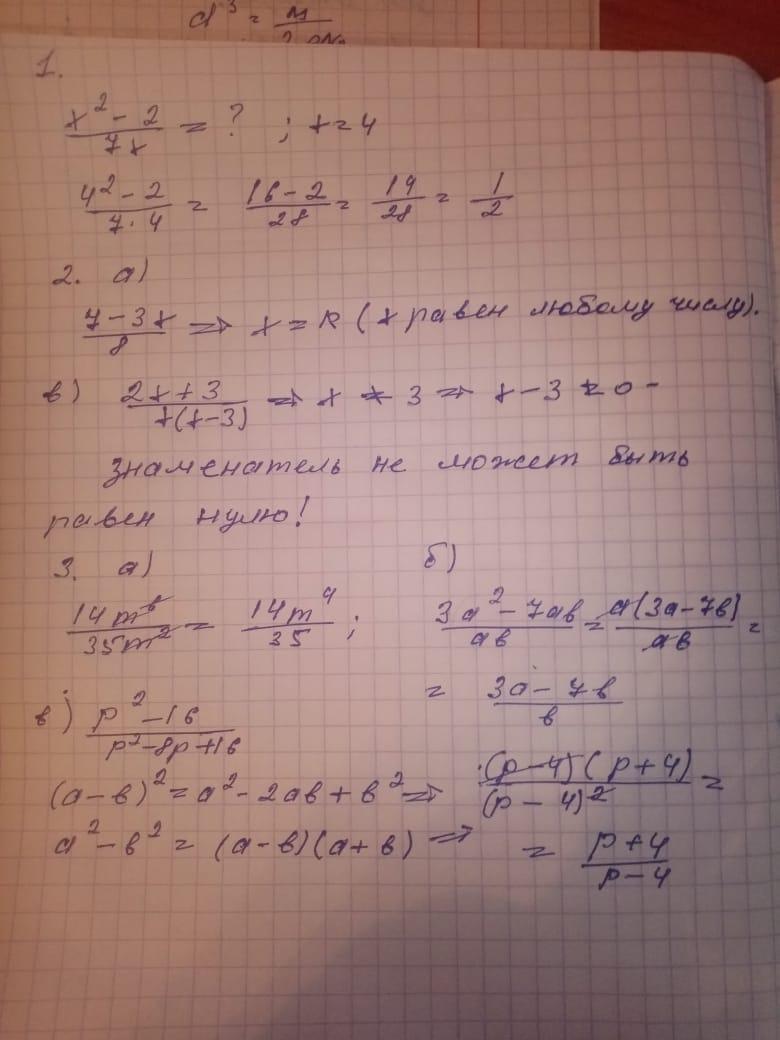 d³ = m
1.
x² - 2 / 7x = ? ; x = 4
4² - 2 / 7 · 4 = 16 - 2 / 28 = 14 / 28 = 1 / 2
2. а)
7 - 3x / 8 => x = R (x равен любому числу).
в) 2x + 3 / x(x - 3) => x ≠ 3 => x - 3 ≠ 0 -
знаменатель не может быть
равен нулю!
3. а)
14m⁶ / 35m² = 14m⁴ / 35 ;
б)
3a² - 7ab / ab = a(3a - 7b) / ab =
= 3a - 7b / b
в) p² - 16 / p² - 8p + 16
(a - b)² = a² - 2ab + b² => (p - 4)(p + 4) / (p - 4)² =
a² - b² = (a - b)(a + b) => = p + 4 / p - 4